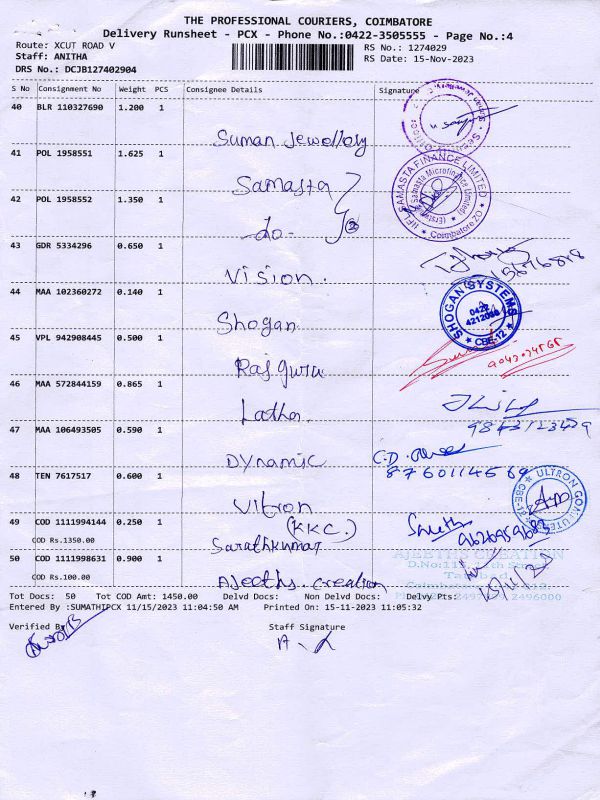 THE PROFESSIONAL COURIERS, COIMBATORE
Delivery Runsheet - PCX - Phone No.:0422-3505555 - Page No.:4
Route: XCUT ROAD V
RS No.: 1274029
Staff: ANITHA
RS Date: 15-Nov-2023
DRS No.: DCJB127402904
S No Consignment No Weight PCS Consignee Details Signature
40 BLR 110327690 1.200 1
Suman Jewellory
41 POL 1958551 1.625 1
Samasta
IIFL SAMASTA FINANCE LIMITED
(Erstwhile Samasta Microfinance Limited)
Coimbatore ZO
42 POL 1958552 1.350 1
-do-
43 GDR 5334296 0.650 1
Vision.
44 MAA 102360272 0.140 1
Shogan
SHOGAN SYSTEMS
0422
CBE-12
45 VPL 942908445 0.500 1
Rajguru
46 MAA 572844159 0.865 1
Latha
47 MAA 106493505 0.590 1
Dynamic
48 TEN 7617517 0.600 1
Vitron
49 COD 1111994144 0.250 1
(KKC.)
COD Rs.1350.00
Sarathkumar
50 COD 1111998631 0.900 1
AJEETHS CREATION
COD Rs.100.00
Ajeeths. creation
Tot Docs: 50 Tot COD Amt: 1450.00 Delvd Docs: Non Delvd Docs: Delvy Pts:
Entered By :SUMATHIPCX 11/15/2023 11:04:50 AM Printed On: 15-11-2023 11:05:32
Verified By
Staff Signature